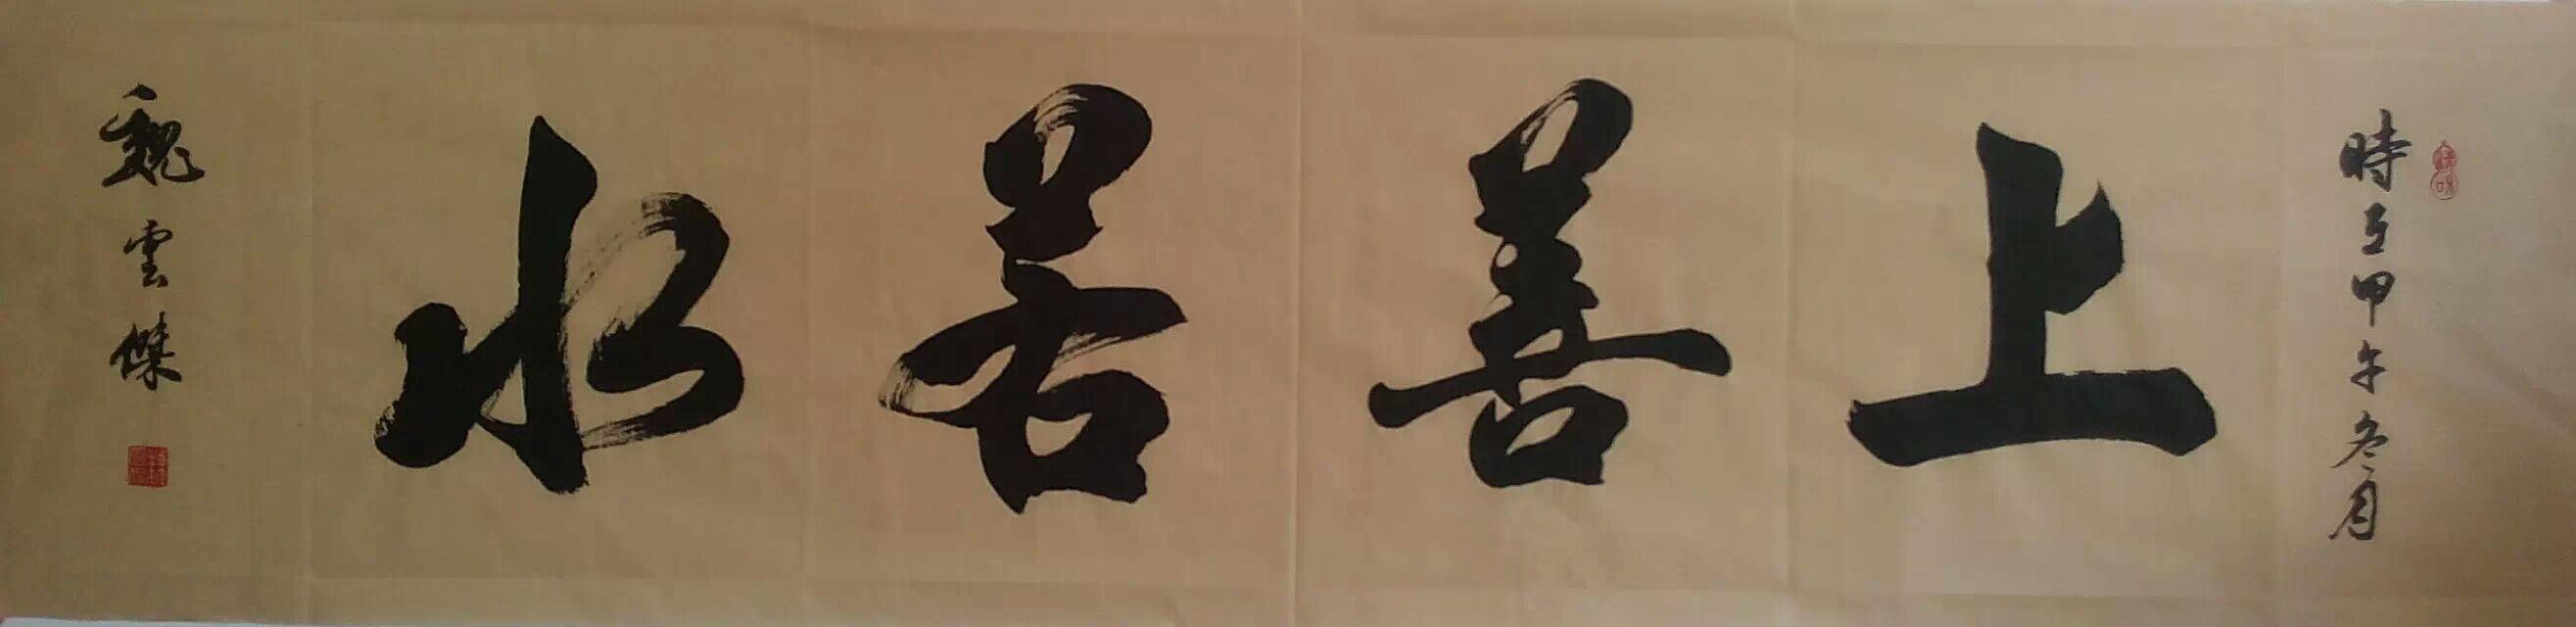 時在甲午冬月
上善若水
魏雲傑